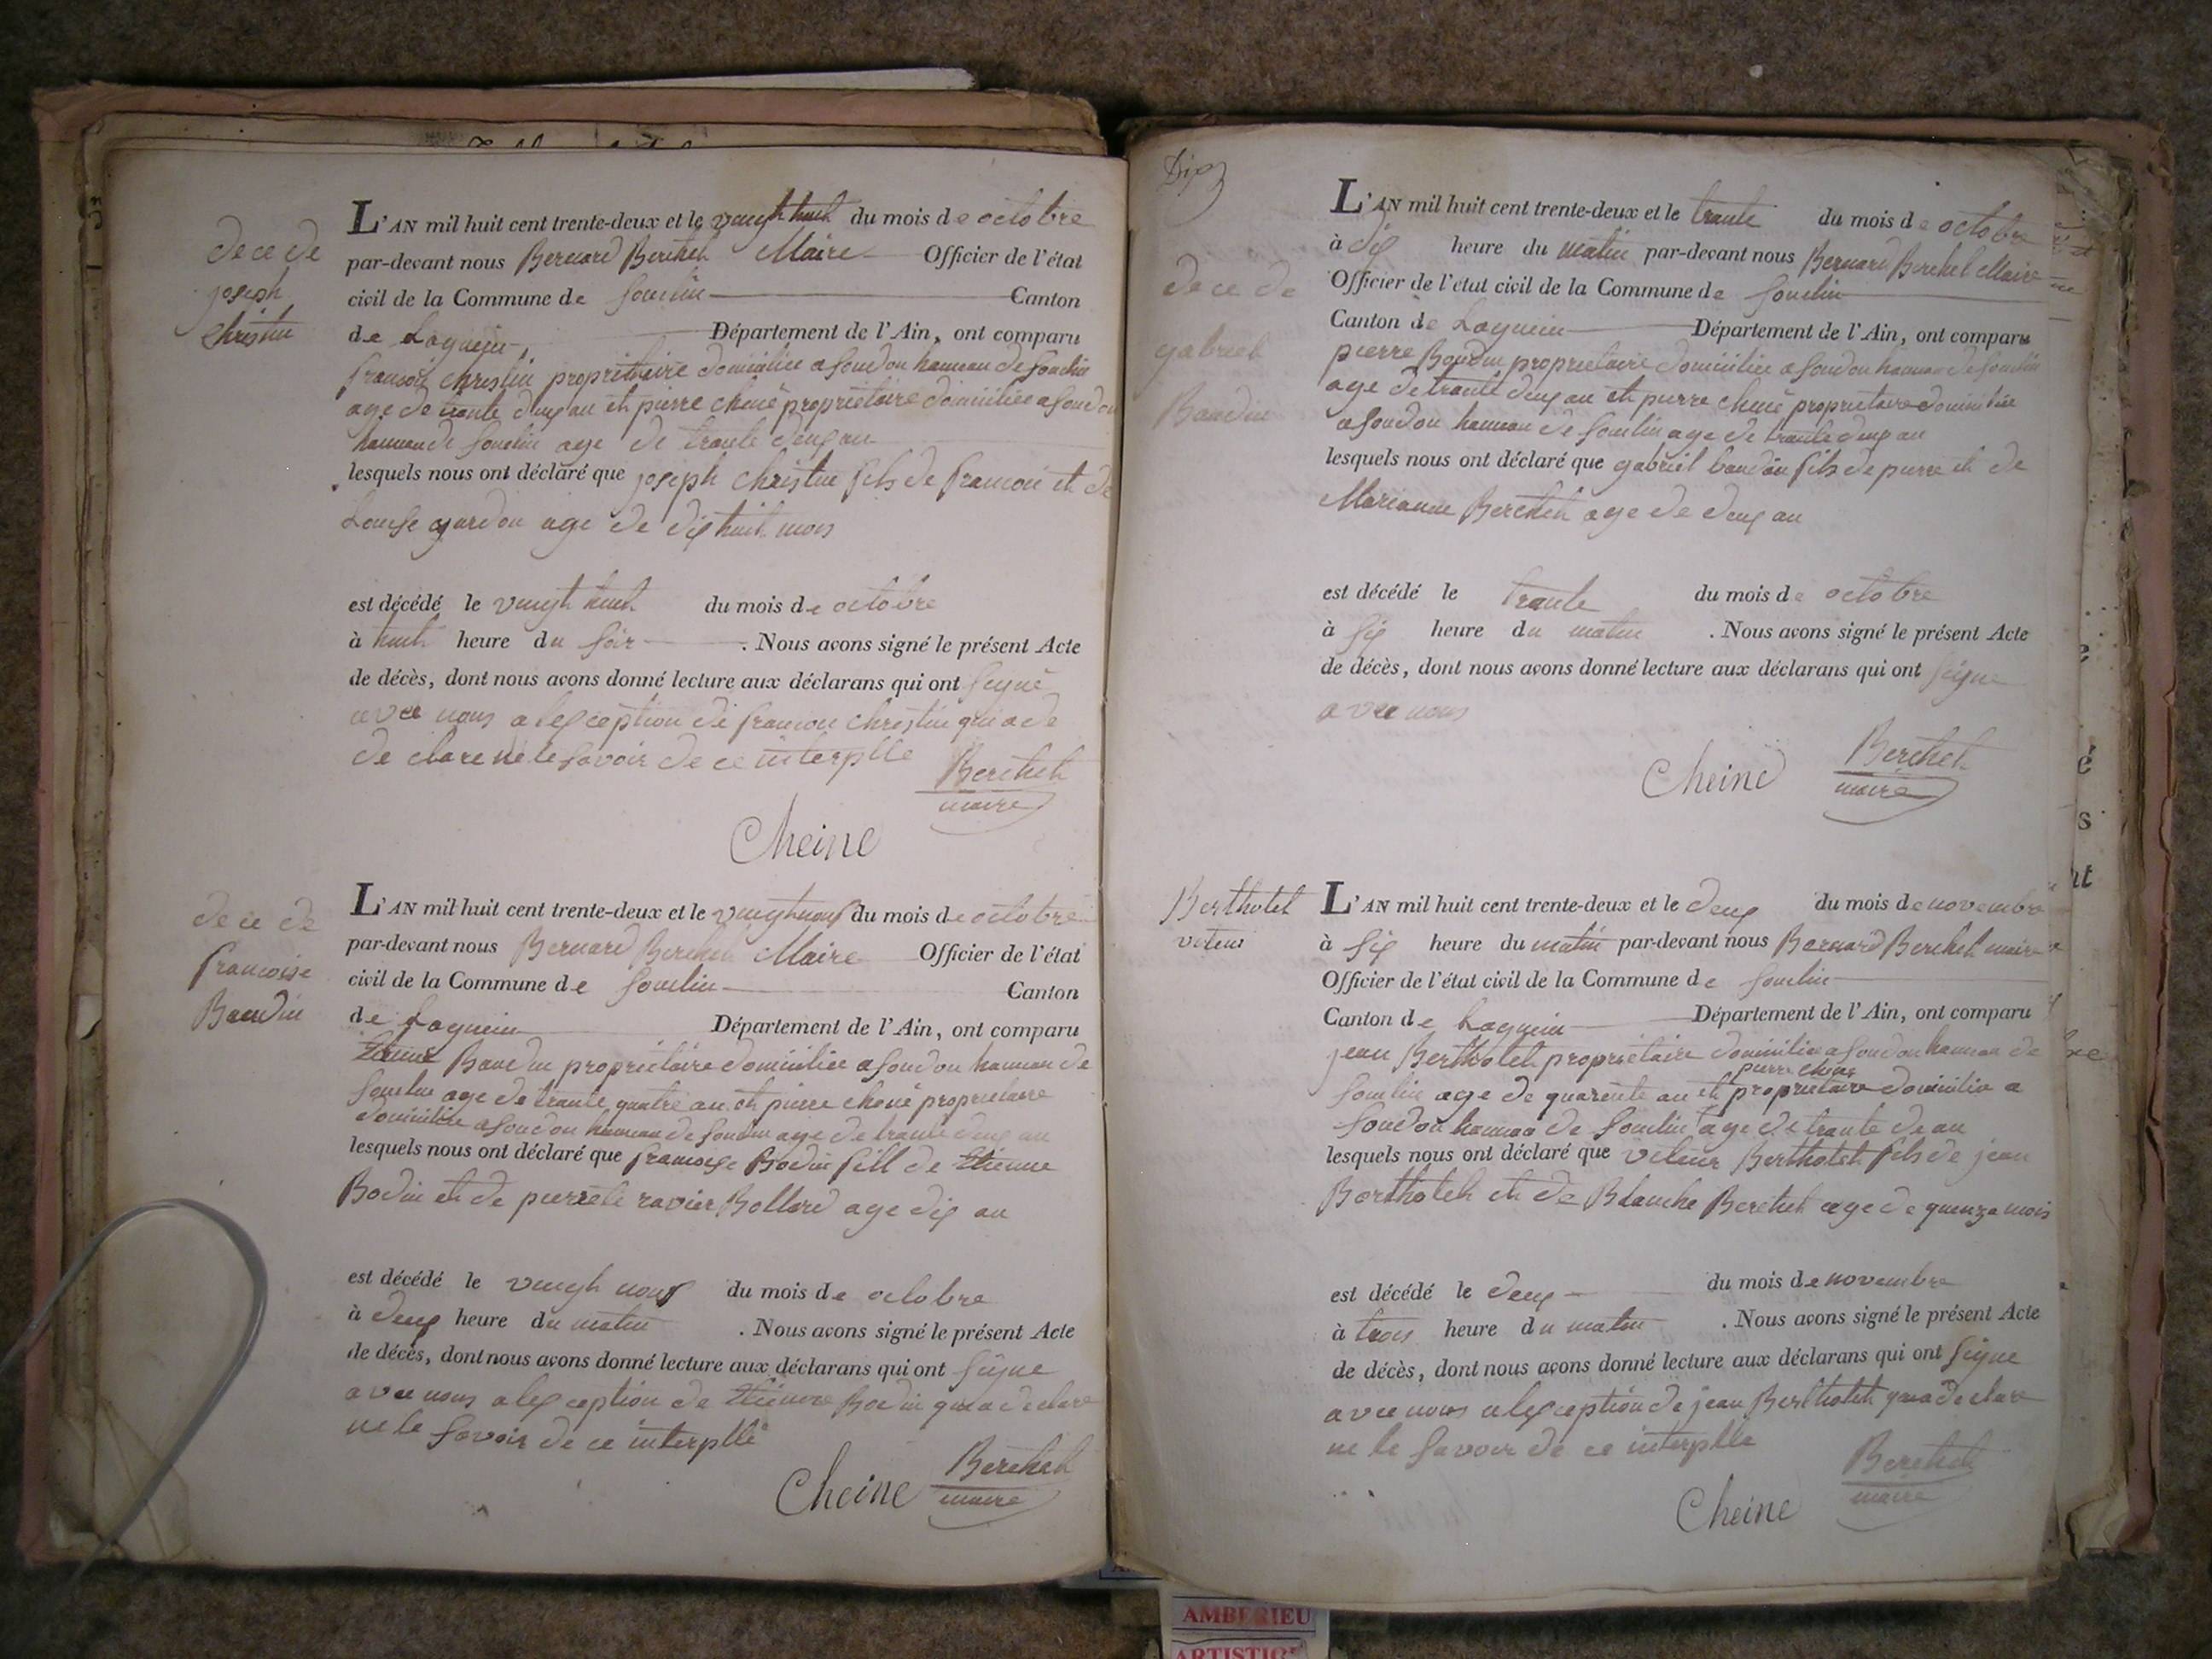 L'AN mil huit cent trente-deux et le vingt huit du mois de octobre
par-devant nous Bernard Berthet Maire Officier de l'état
civil de la Commune de Souclin Canton
de Lagnieu, Département de l'Ain, ont comparu
francois christin proprietaire domiciliee a soudon hameau de souclin
age de trante deux an et pierre cheine propriétaire domiciliee a soudon
hameau de souclin age de trante deux an
lesquels nous ont déclaré que joseph christin fils de francoi et de
Louise gardon age de dix huit mois
est décédé le vingt huit du mois de octobre
à huit heure du soir . Nous avons signé le présent Acte
de décès, dont nous avons donné lecture aux déclarans qui ont signé
avec nous a lexception de francoi christin qui a de
de clare ne le savoir de ce interplle
Berthet
maire
Cheine
de ce de
joseph
christin
L'AN mil huit cent trente-deux et le vingt nouf du mois de octobre
par-devant nous Bernard Berthet Maire Officier de l'état
civil de la Commune de souclin Canton
de Lagnieu Département de l'Ain, ont comparu
Etienne Baudin propriétaire domiciliee a soudon hameau de
souclin age de trante quatre an et pierre cheine proprietaire
domiciliee a soudon hameau de souclin age de trante deux an
lesquels nous ont déclaré que francoise Bodin fill de Etienne
Bodin et de pierrete ravier Bollard age dix an
est décédé le vingt nouf du mois de octobre
à deux heure du matin . Nous avons signé le présent Acte
de décès, dont nous avons donné lecture aux déclarans qui ont signe
avec nous a lexception de Etienne Bodin qui a declare
ne le savoir de ce interplle
Cheine Berthet
maire
de ce de
francoise
Baudin
Dix
L'AN mil huit cent trente-deux et le trante du mois de octobre
à dix heure du matin par-devant nous Bernard Berthet Maire
Officier de l'état civil de la Commune de souclin
Canton de Lagnieu Département de l'Ain, ont comparu
pierre Boudin proprietaire domiciliee a soudon hameau de souclin
age de trante deux an et pierre cheine proprietaire domiciliee
a soudon hameau de souclin age de trante deux an
lesquels nous ont déclaré que gabriel baudin fils de pierre et de
Marianne Berthet age de deux an
est décédé le trante du mois de octobre
à six heure du matin . Nous avons signé le présent Acte
de décès, dont nous avons donné lecture aux déclarans qui ont signe
avec nous
Cheine Berthet
maire
de ce de
gabriel
Baudin
Berthotet
L'AN mil huit cent trente-deux et le deux du mois de novembre
à six heure du matin par-devant nous Bernard Berthet maire
Officier de l'état civil de la Commune de souclin
Canton de Lagnieu Département de l'Ain, ont comparu
jean Berthotet propriétaire domicilie a soudon hameau de
pierre cheine
souclin age de quarente an et proprietaire domicilie a
soudon hameau de souclin age de trante de an
lesquels nous ont déclaré que Berthotet fils de jean
Berthotet et de Blanche Berthet age de quenze mois
est décédé le deux du mois de novembre
à trois heure du matin . Nous avons signé le présent Acte
de décès, dont nous avons donné lecture aux déclarans qui ont signe
avec nous a lexception de jean Berthotet qui a declare
ne le savoir de ce interplle
Berthet
maire
Cheine
AMBERIEU
ARTISTIQ